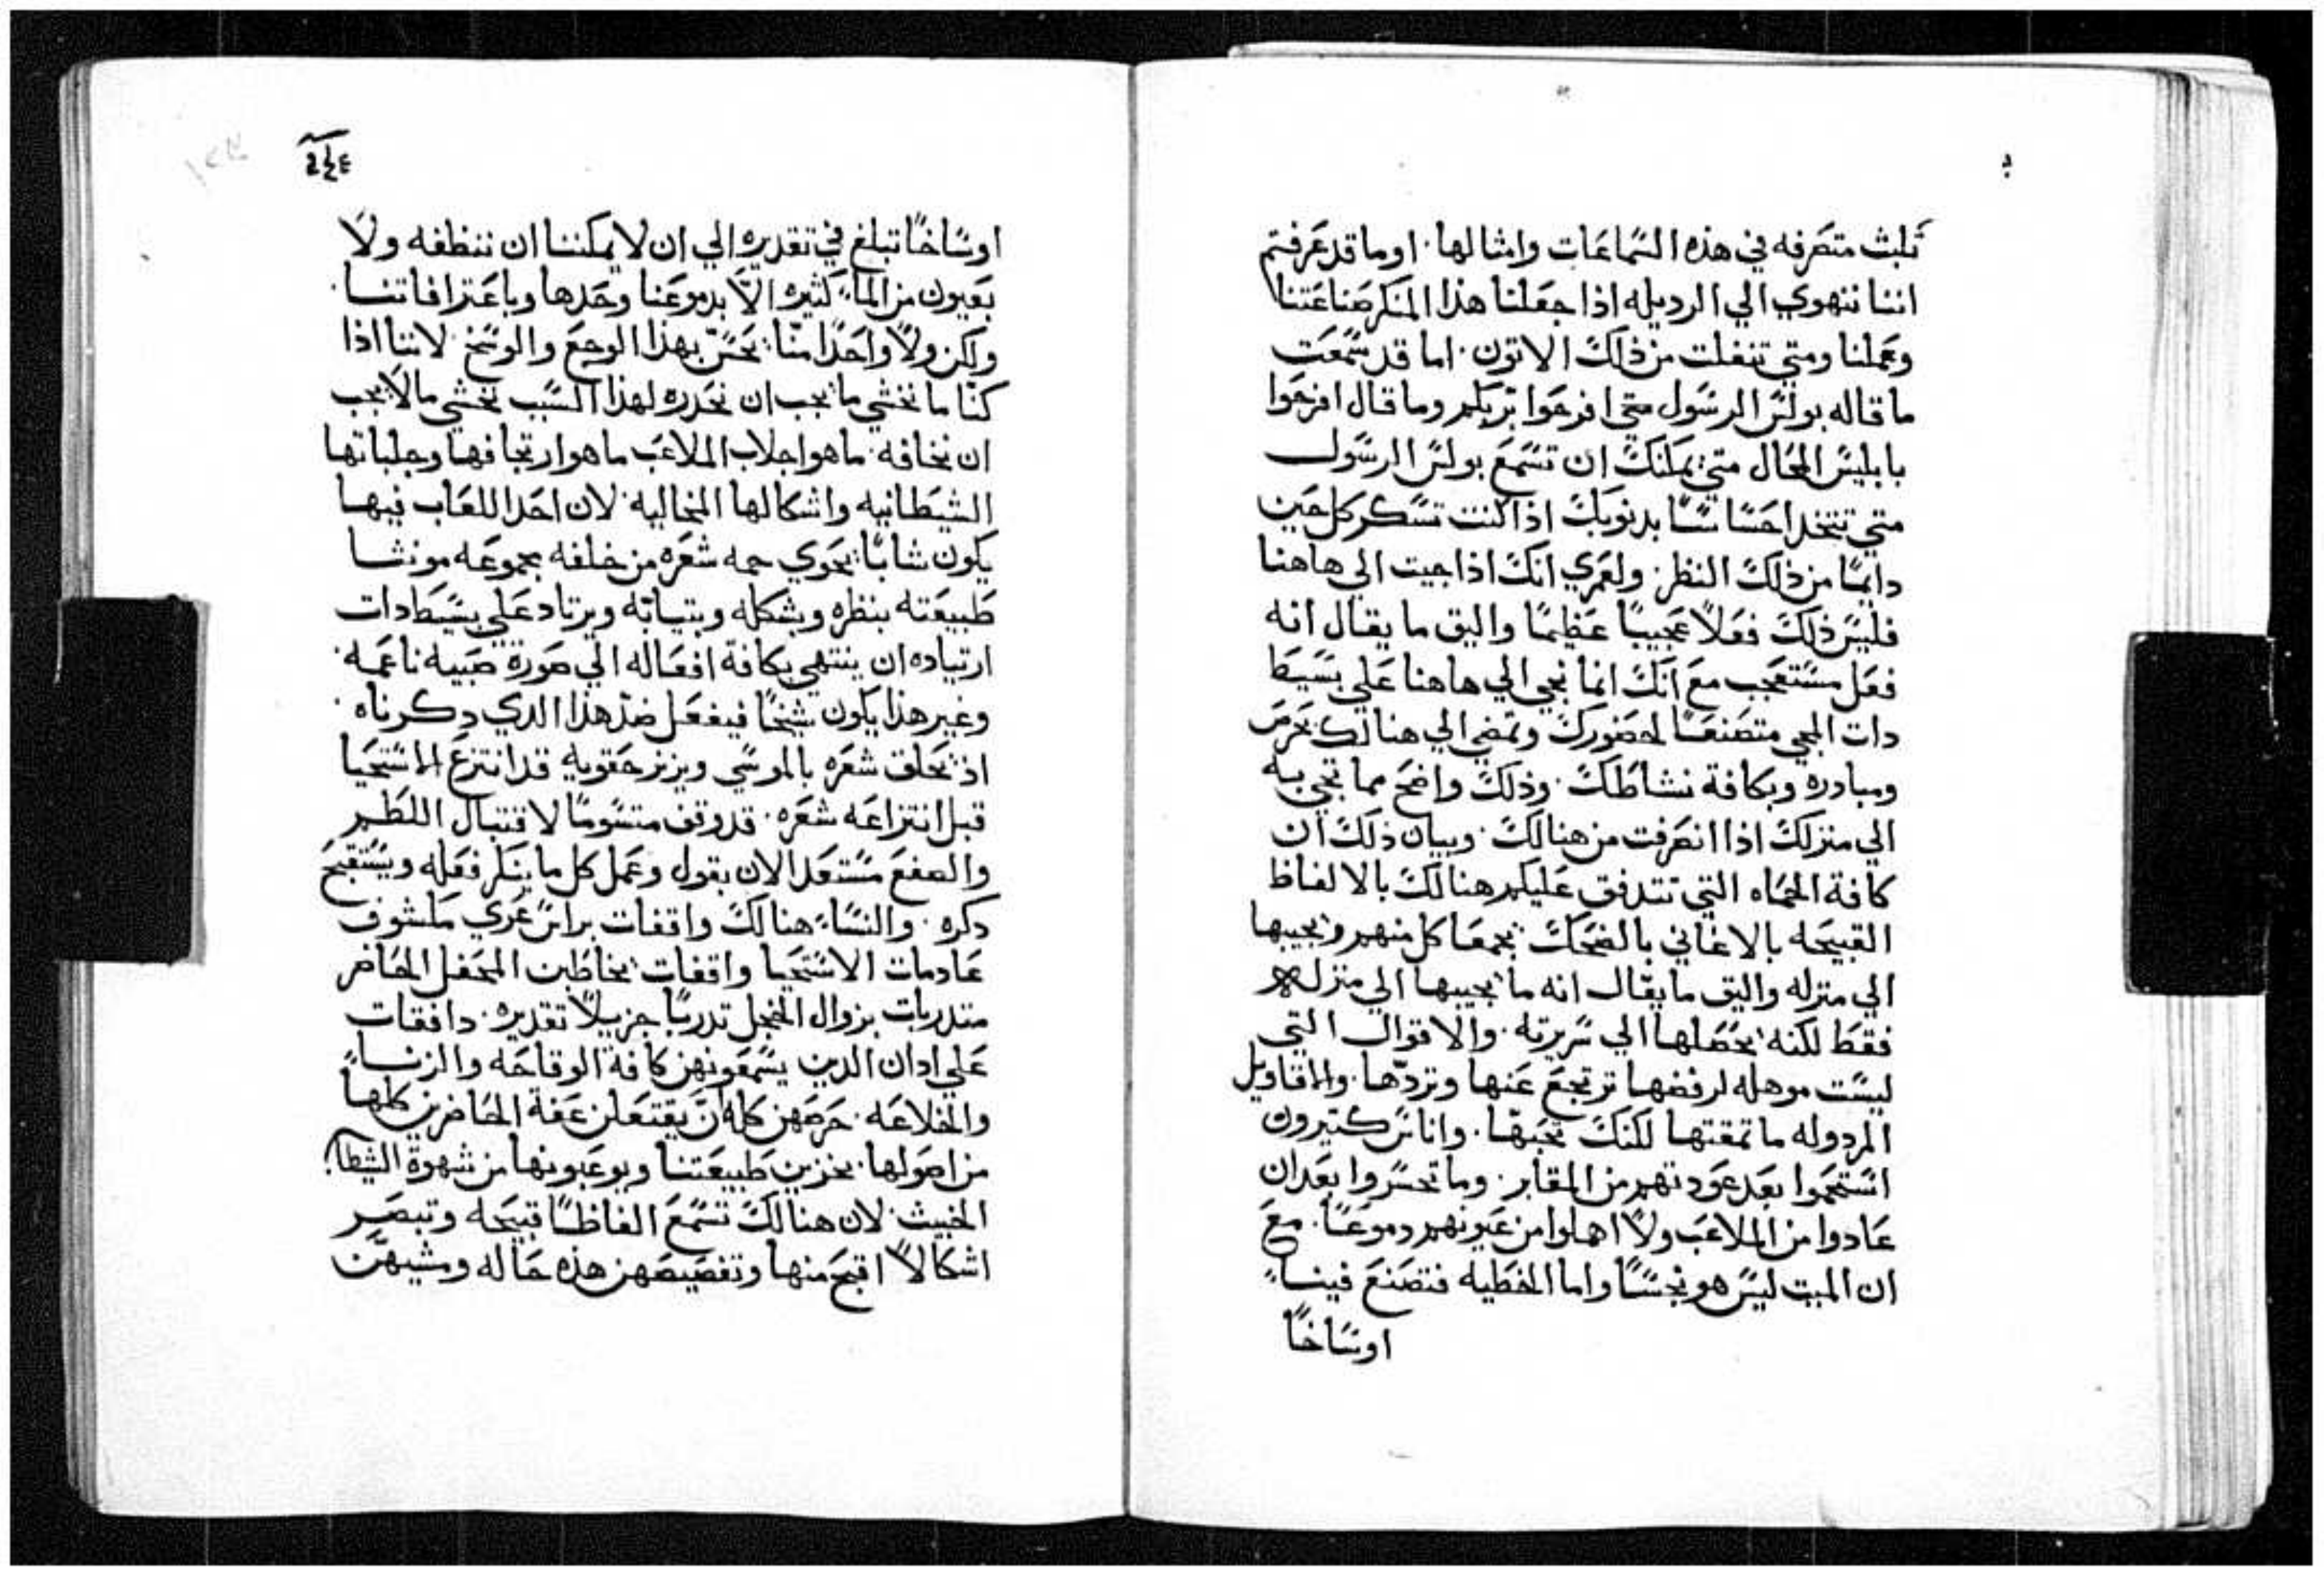 تلبث متصرفه في هذه السماعات وامثالها. اوما قد عرفتم
اننا نتهوي الي الرديله اذا جعلنا هذا المنكر صناعتنا
وعملنا ومتي تنفلت من ذلك الاتون. اما قد سمعت
ما قاله بولس الرسول متي افرحوا بربكم وما قال افرحوا
بابليس المحال متي يمكنك ان تسمع بولس الرسول
متي تتخد احساسًا بدنوبك اذا كنت تسكر كل حين
دايمًا من ذلك النظر. ولعمري انك اذا جيت الي هاهنا
فليس ذلك فعلًا عجيبًا عظيمًا واليق ما يقال انه
فعل مستعجب مع انك انما تجي الي هاهنا علي بسيط
دات المجي متصنعًا لحضورك وتمضي الي هنالك بحرص
ومبادره وبكافة نشاطك. وذلك واضح مما تجي به
الي منزلك اذا انصرفت من هنالك. وبيان ذلك ان
كافة الحماه التي تتدفق عليكم هنالك بالالفاظ
القبيحه بالاغاني بالضحك يجمعها كل منهم ويجيبها
الي منزله واليق ما يقال انه ما يجيبها الي منزله
فقط لكنه يحصلها الي سريرته. والاقوال التي
ليست موهله لرفضها ترتجع عنها وتردّها. والاقاويل
المردوله ما تمقتها لكنك تحبّها. واناس كتيرون
استحموا بعد عودتهم من المقابر. وما تحسروا بعد ان
عادوا من الملاعب ولا اهملوا من عيونهم دموعًا. مع
ان الميت ليس هو نجسًا واما الخطيه فتصنع فينا
اوساخًا
٢٤٤
اوساخًا تبلغ في تقديره الي ان لا يمكننا ان ننظفه ولا
بعيون من الماء كثيره الّا بدموعنا وحدها وباعترافاتنا.
ولكن ولا واحدًا منّا يحسّ بهذا الوجع والوسخ. لاننا اذا
كنّا ما نخشي ما يجب ان نحدره لهذا السبب نخشي ما لا يجب
ان نخافه. ما هو اجلاب الملاعب ما هو ارتجافها وجلباتها
الشيطانيه واشكالها المخاليه. لان احد اللعاب فيها
يكون شابًا يحوي جمه شعره من خلفه مجموعه مونثا
طبيعته بنظره وبشكله وبتيابه ويرتاد علي بسيط دات
ارتياده ان ينتهي بكافة افعاله الي صورة صبيه ناعمه.
وغير هذا يكون شيخًا فيفعل ضدّ هذا الدي دكرناه.
اذ يحلق شعره بالموسي ويزنر حقويه قد انتزع الاستحيا
قبل انتزاعه شعره. قد وقف متسومًا لاقتبال اللطم
والصفع مستعدًا لان يقول وعمل كل ما ينكر فعله ويستقبح
دكره. والنساء هنالك واقفات براس عري مكشوف
عادمات الاستحيا واقفات يخاطبن المحفل الحاضر
متدربات بزوال الخجل تدربًا جزيلًا تقديره. دافقات
علي ادان الدين يسمعونهن كافة الوقاحه والزنا
والخلاعه. حرصهن كله ان يقتعلن عفة الحاضرين كلها
من اصولها. يخزين طبيعتنا ويوعبونها من شهوة الشيطان
الخبيث. لان هنالك تسمع الفاظًا قبيحه وتبصر
اشكالًا اقبح منها وتفصيصهن هذه حاله ومشيهن